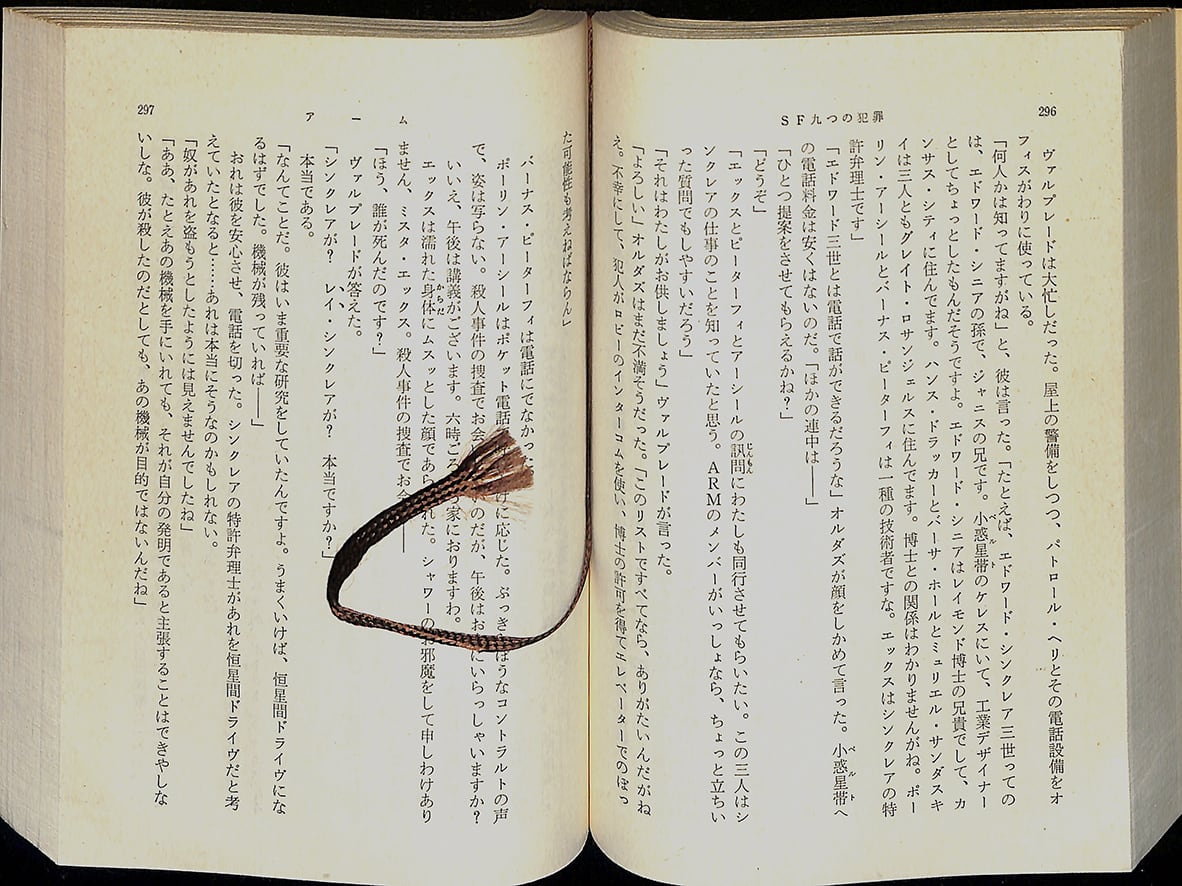 296
SF九つの犯罪
ヴァルプレードは大忙しだった。屋上の警備をしつつ、パトロール・ヘリとその電話設備をオ
フィスがわりに使っている。
「何人かは知ってますがね」と、彼は言った。「たとえば、エドワード・シンクレア三世っての
は、エドワード・シニアの孫で、ジャニスの兄です。小惑星帯のケレスにいて、工業デザイナー
としてちょっとしたもんだそうですよ。エドワード・シニアはレイモンド博士の兄貴でして、カ
ンサス・シティに住んでます。ハンス・ドラッカーとバーサ・ホールとミュリエル・サンダスキ
イは三人ともグレイト・ロサンジェルスに住んでます。博士との関係はわかりませんがね。ポー
リン・アーシールとバーナス・ピーターフィは一種の技術者ですな。エックスはシンクレアの特
許弁理士です」
「エドワード三世とは電話で話ができるだろうな」オルダズが顔をしかめて言った。小惑星帯へ
の電話料金は安くはないのだ。「ほかの連中は――」
「ひとつ提案をさせてもらえるかね？」
「どうぞ」
「エックスとピーターフィとアーシールの訊問にわたしも同行させてもらいたい。この三人はシ
ンクレアの仕事のことを知っていたと思う。ARMのメンバーがいっしょなら、ちょっと立ちい
った質問でもしやすいだろう」
「それはわたしがお供しましょう」ヴァルプレードが言った。
「よろしい」オルダズはまだ不満そうだった。「このリストですべてなら、ありがたいんだがね
え。不幸にして、犯人がロビーのインターコムを使い、博士の許可を得てエレベーターでのぼっ
297
アーム
た可能性も考えねばならん」
バーナス・ピーターフィは電話にでなかっ
ポーリン・アーシールはポケット電話 に応じた。ぶっき ぼうなコントラルトの声
で、姿は写らない。殺人事件の捜査でお会 のだが、午後はお にいらっしゃいますか？
いいえ、午後は講義がございます。六時ごろ 家におりますわ。
エックスは濡れた身体にムスッとした顔であら れた。シャワーのお邪魔をして申しわけあり
ません、ミスタ・エックス。殺人事件の捜査でお会 ――
「ほう、誰が死んだのです？」
ヴァルプレードが答えた。
「シンクレアが？ レイ・シンクレアが？ 本当ですか？」
本当である。
「なんてことだ。彼はいま重要な研究をしていたんですよ。うまくいけば、恒星間ドライヴにな
るはずでした。機械が残っていれば――」
おれは彼を安心させ、電話を切った。シンクレアの特許弁理士があれを恒星間ドライヴだと考
えていたとなると……あれは本当にそうなのかもしれない。
「奴があれを盗もうとしたようには見えませんでしたね」
「ああ、たとえあの機械を手にいれても、それが自分の発明であると主張することはできやしな
いしな。彼が殺したのだとしても、あの機械が目的ではないんだね」